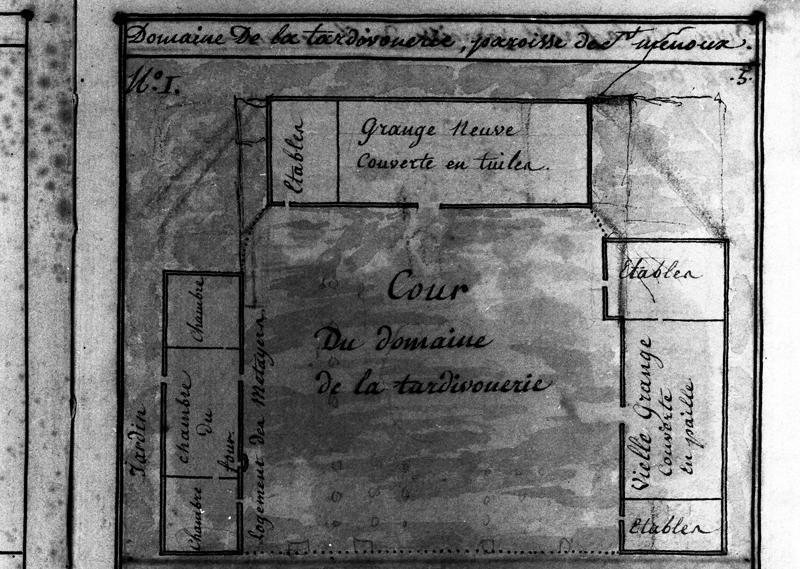 Domaine De la tardivouerie, paroisse de St menoux.
N.º I.
.5.
Etables
Grange Neuve
Couverte en tuiles.
Cour
Du domaine
de la tardivouerie
Etables
Vielle Grange
Couverte
en paille
Etables
Chambre
chambre
du
four.
Chambre
Logement des Metayers
Jardin